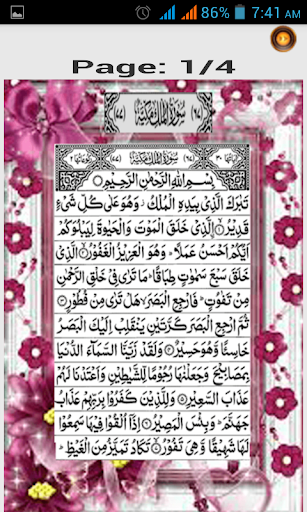 86% 7:41 AM
Page: 1/4
(٦٧) سُوۡرَةُ الۡمُلۡكِ مَكِّيَّةٌ (٧٧)
(٦٧) سُوۡرَةُ الۡمُلۡكِ مَكِّيَّةٌ (٧٧)
بِسۡمِ اللّٰهِ الرَّحۡمٰنِ الرَّحِيۡمِ
تَبٰرَكَ الَّذِىۡ بِيَدِهِ الۡمُلۡكُ وَهُوَ عَلٰى كُلِّ شَىۡءٍ
قَدِيۡرُ ۨ الَّذِىۡ خَلَقَ الۡمَوۡتَ وَالۡحَيٰوةَ لِيَبۡلُوَكُمۡ
اَيُّكُمۡ اَحۡسَنُ عَمَلًا ؕ وَهُوَ الۡعَزِيۡزُ الۡغَفُوۡرُ ۙ الَّذِىۡ
خَلَقَ سَبۡعَ سَمٰوٰتٍ طِبَاقًا ؕ مَا تَرٰى فِىۡ خَلۡقِ الرَّحۡمٰنِ
مِنۡ تَفٰوُتٍ ؕ فَارۡجِعِ الۡبَصَرَ ۙ هَلۡ تَرٰى مِنۡ فُطُوۡرٍ
ثُمَّ ارۡجِعِ الۡبَصَرَ كَرَّتَيۡنِ يَنۡقَلِبۡ اِلَيۡكَ الۡبَصَرُ
خَاسِئًا وَّهُوَ حَسِيۡرٌ وَلَقَدۡ زَيَّنَّا السَّمَآءَ الدُّنۡيَا
بِمَصَابِيۡحَ وَجَعَلۡنٰهَا رُجُوۡمًا لِّلشَّيٰطِيۡنِ وَاَعۡتَدۡنَا لَهُمۡ
عَذَابَ السَّعِيۡرِ وَلِلَّذِيۡنَ كَفَرُوۡا بِرَبِّهِمۡ عَذَابُ
جَهَنَّمَ ؕ وَبِئۡسَ الۡمَصِيۡرُ اِذَاۤ اُلۡقُوۡا فِيۡهَا سَمِعُوۡا
لَهَا شَهِيۡقًا وَّهِىَ تَفُوۡرُ ۙ تَكَادُ تَمَيَّزُ مِنَ الۡغَيۡظِ ؕ